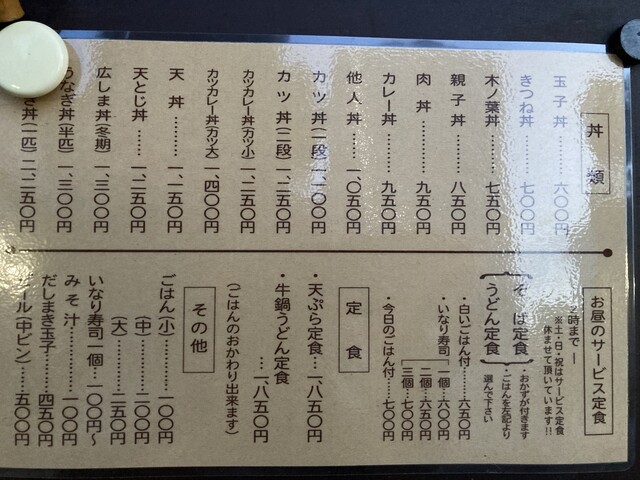 丼類
玉子丼………六〇〇円
きつね丼……七〇〇円
木ノ葉丼……七五〇円
親子丼………八五〇円
肉丼…………九五〇円
カレー丼……九五〇円
他人丼……一、〇五〇円
カツ丼(一段)一、一〇〇円
カツ丼(二段)一、二五〇円
カツカレー丼(カツ小)一、二五〇円
カツカレー丼(カツ大)一、四〇〇円
天丼………一、一五〇円
天とじ丼……一、二五〇円
広しま丼(冬期)一、三〇〇円
うなぎ丼(半匹)一、三〇〇円
丼(一匹)二、二五〇円
お昼のサービス定食
2時まで
※土・日・祝はサービス定食
休ませて頂いています!!
そば定食
うどん定食
・おかずが付きます
・ごはんを左記より
選んで下さい
・白いごはん付……六五〇円
・いなり寿司 一個…六〇〇円
二個…六五〇円
三個…七〇〇円
・今日のごはん付…七〇〇円
定食
・天ぷら定食…一、八五〇円
・牛鍋うどん定食
…一、八五〇円
(ごはんのおかわり出来ます)
その他
ごはん(小)…一〇〇円
(中)…二〇〇円
(大)…二五〇円
いなり寿司一個…一〇〇円〜
みそ汁………一〇〇円
だしまき玉子…四五〇円
ール(中ビン)…五〇〇円